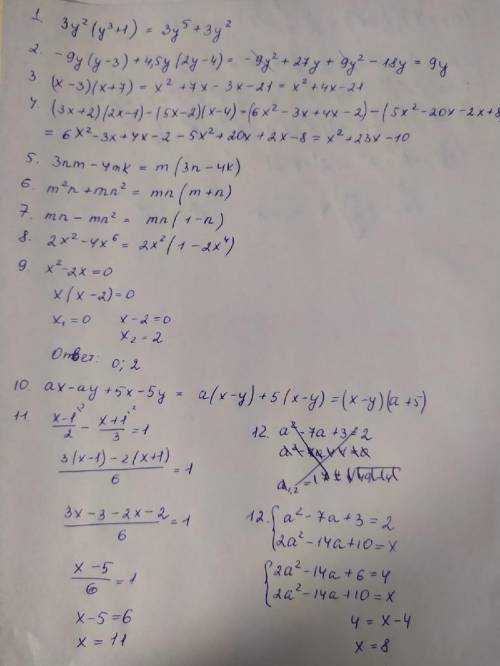 1. 3y²(y³+1) = 3y⁵+3y²
2. -9y(y-3)+4,5y(2y-4) = -9y²+27y+9y²-18y = 9y
3. (x-3)(x+7) = x²+7x-3x-21 = x²+4x-21
4. (3x+2)(2x-1)-(5x-2)(x-4)=(6x²-3x+4x-2)-(5x²-20x-2x+8
= 6x²-3x+4x-2-5x²+20x+2x-8 = x²+23x-10
5. 3nm-4mk = m(3n-4k)
6. m²n+mn² = mn(m+n)
7. mn-mn² = mn(1-n)
8. 2x²-4x⁶ = 2x²(1-2x⁴)
9. x²-2x=0
x(x-2)=0
x₁=0 x-2=0
x₂=2
Ответ: 0; 2
10. ax-ay+5x-5y = a(x-y)+5(x-y)=(x-y)(a+5)
11. (x-1)/2 - (x+1)/3 = 1
(3(x-1)-2(x+1))/6 = 1
(3x-3-2x-2)/6 = 1
(x-5)/6 = 1
x-5=6
x = 11
12. a²-7a+3=2
12. { a²-7a+3=2
2a²-14a+10=x
{ 2a²-14a+6=4
2a²-14a+10=x
4 = x-4
x=8